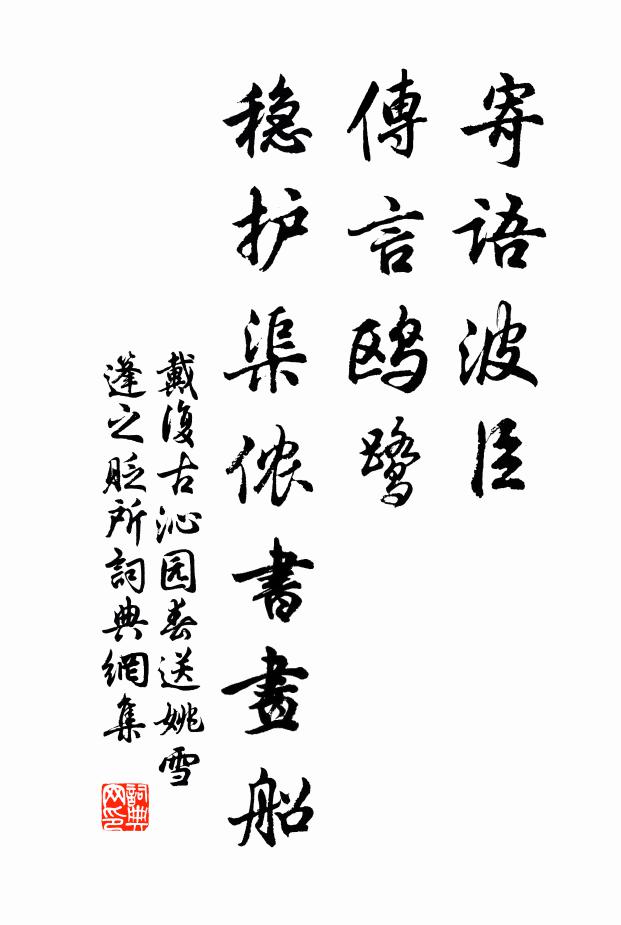 寄語波臣
傳言鸥鹭
穏护渠侬書畫船
戴復古沁园春送姚雪
蓬之貶所詞典網集
詞典
网印